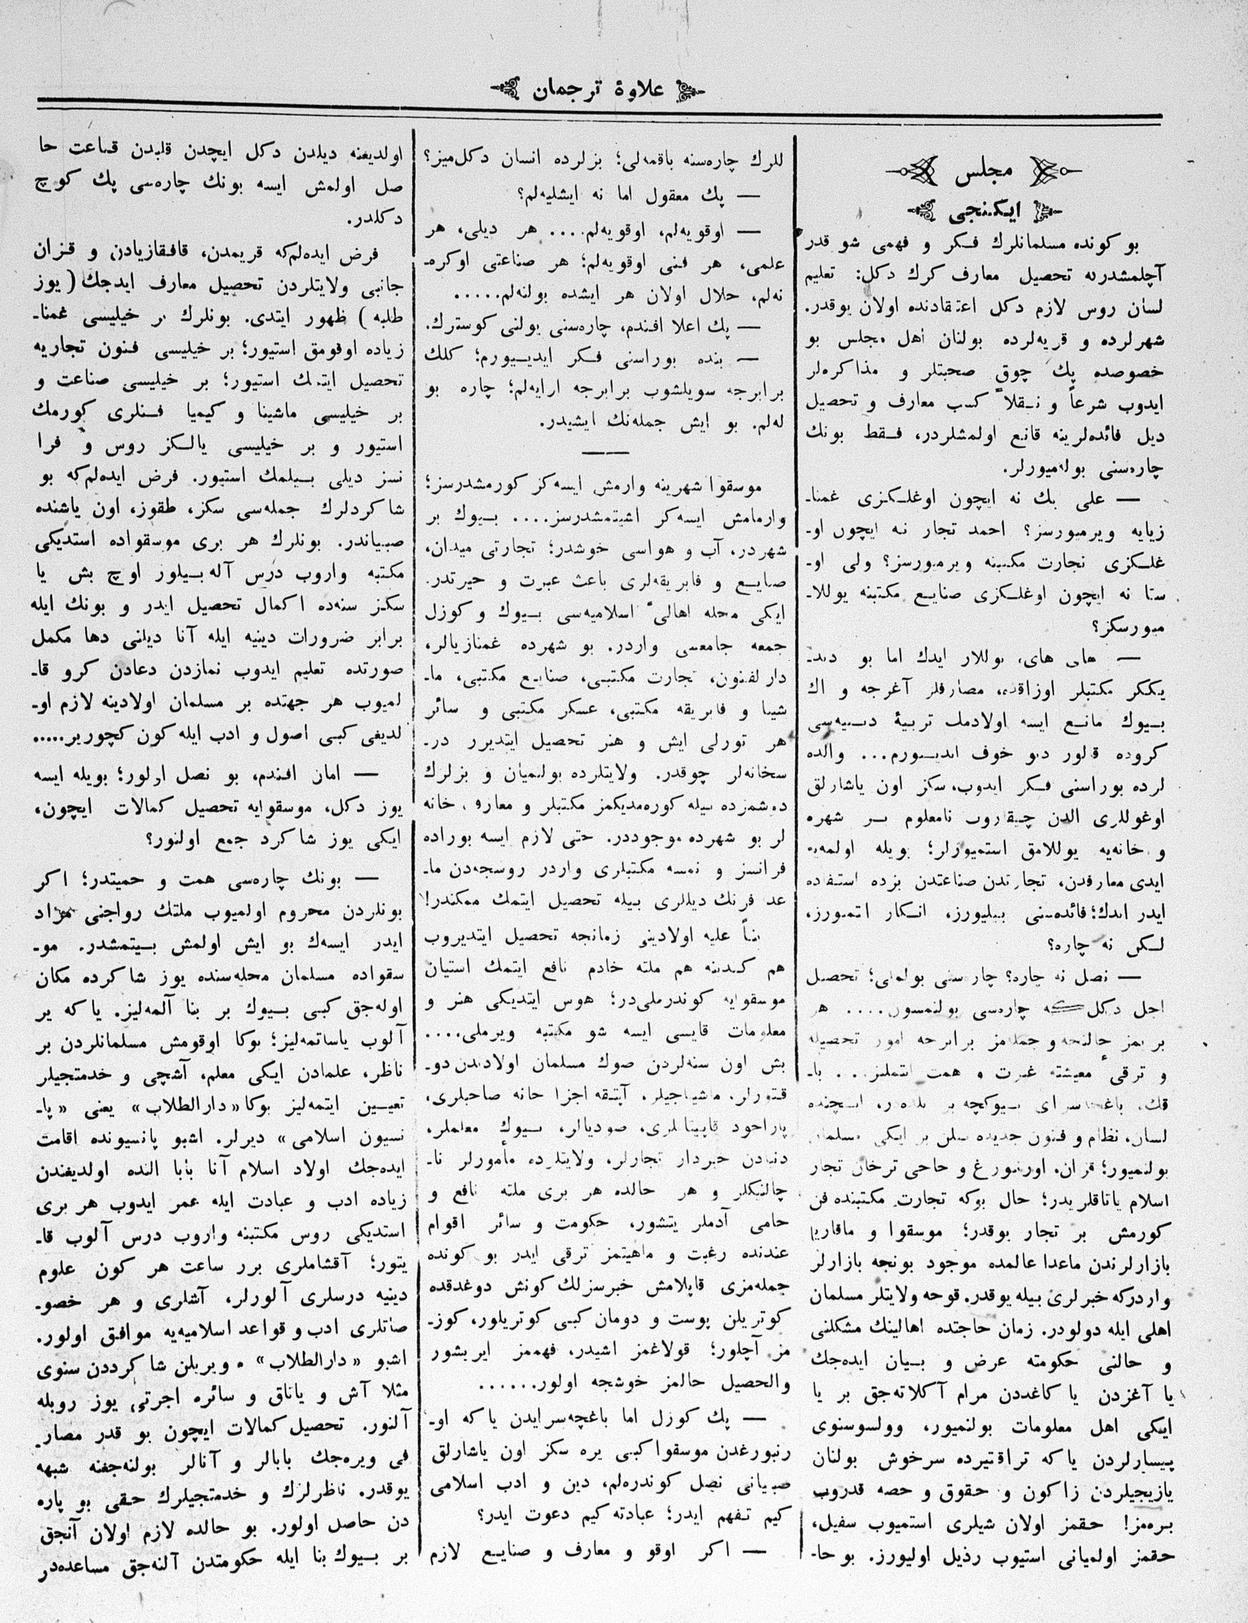 علاوۀ ترجمان
مجلس
ايكنجى
بو كونده مسلمانلرك فكر و فهمى شو قدر
آچلمشدرنه تحصيل معارف كرك دكل: تعليم
لسان روس لازم دكل اعتقادنده اولان يوقدر.
شهرلرده و قريه‌لرده بولنان اهل مجلس بو
خصوصده پك چوق صحبتلر و مذاكره‌لر
ايدوب شرعاً و نقلاً كسب معارف و تحصيل
ديل فائده‌لرينه قانع اولمشلردر، فقط بونك
چاره‌سنى بوله‌ميورلر.
— على بك نه ايچون اوغلكزى غمنا-
زيايه ويرميورسز؟ احمد تجار نه ايچون او-
غلكزى تجارت مكتبنه ويرميورسز؟ ولى او-
ستا نه ايچون اوغلكزى صنايع مكتبنه يوللا-
ميورسكز؟
— هاى هاى، يوللار ايدك اما بو ديد-
يككر مكتبلر اوزاقده، مصارفلر آغرجه و اك
بيوك مانع ايسه اولادمك تربيۀ دينيه‌سى
كروده قالور ديو خوف ايديورم... والده
لرده بوراسنى فكر ايدوب، سكز اون ياشارلق
اوغوللرى الدن چيقاروب نامعلوم بر شهره
و خانه‌يه يوللامق استميورلر؛ بويله اولمه‌يه
ايدى معارفدن، تجارتدن صناعتدن بزده استفاده
ايدر ايدك؛ فائده‌سنى بيليورز، انكار اتميورز،
لكن نه چاره؟
— نصل نه چاره؟ چاره‌سنى بولملى؛ تحصيل
اجل دكل كه چاره‌سى بولنمسون.... هر
برمز حالنجه و جمله‌مز برابرجه امور تحصيله
و ترقئ معيشته غيرت و همت ايتمليز... با-
قك، باغچه‌سراى بيوكچه بر بلده‌در، ايچنده
لسان، نظام و فنون جديده بيلن بر ايكى مسلمان
بولنميور؛ قزان، اورنبورغ و حاجى ترخان تجار
اسلام ياتاقلريدر؛ حال بوكه تجارت مكتبنده فن
كورمش بر تجار يوقدر؛ موسقوا و ماقاريا
بازارلرندن ماعدا عالمده موجود بونجه بازارلر
واردركه خبرلرى بيله يوقدر. قوجه ولايتلر مسلمان
اهلى ايله دولودر. زمان حاجتده اهالينك مشكلنى
و حالنى حكومته عرض و بيان ايده‌جك
يا آغزدن يا كاغددن مرام آكلاته‌جق بر يا
ايكى اهل معلومات بولنميور، وولسوسنوى
پيسارلردن ياكه تراقتيرده سرخوش بولنان
يازيجيلردن زاكون و حقوق و حصه قدروب
بره‌مز! حقمز اولان شيلرى استميوب سفيل،
حقمز اولميانى استيوب رذيل اوليورز. بو حا-
للرك چاره‌سنه باقمه‌لى؛ بزلرده انسان دكل‌ميز؟
— پك معقول اما نه ايشليه‌لم؟
— اوقويه‌لم، اوقويه‌لم.... هر ديلى، هر
علمى، هر فنى اوقويه‌لم؛ هر صناعتى اوكره-
نه‌لم، حلال اولان هر ايشده بولنه‌لم.....
— پك اعلا افندم، چاره‌سنى يولنى كوسترك.
— بنده بوراسنى فكر ايديورم؛ كلك
برابرجه سويلشوب برابرجه ارايه‌لم؛ چاره بو
له‌لم. بو ايش جمله‌نك ايشيدر.
موسقوا شهرينه وارمش ايسه‌كز كورمشدرسز؛
وارمامش ايسه‌كز اشيتمشدرسز.... بيوك بر
شهردر، آب و هواسى خوشدر؛ تجارتى ميدان،
صنايع و فابريقه‌لرى باعث عبرت و حيرتدر.
ايكى محله اهالئ اسلاميه‌سى بيوك و كوزل
جمعه جامعسى واردر. بو شهرده غمنازيالر،
دارلفنون، تجارت مكتبى، صنايع مكتبى، ما-
شينا و فابريقه مكتبى، عسكر مكتبى و سائر
هر تورلى ايش و هنر تحصيل ايتديرر در-
سخانه‌لر چوقدر. ولايتلرده بولنميان و بزلرك
دوشمزده بيله كوره‌مديكمز مكتبلر و معارف خانه
لر بو شهرده موجوددر. حتى لازم ايسه بوراده
فرانسز و نمسه مكتبلرى واردر روسجه‌دن ما-
عدا فرنك ديللرى بيله تحصيل ايتمك ممكندر!
بناً عليه اولادينى زمانجه تحصيل ايتديروب
هم كندينه هم ملته خادم نافع ايتمك استيان
موسقوايه كوندرملى‌در؛ هوس ايتديكى هنر و
معلومات قايسى ايسه شو مكتبه ويرملى....
بش اون سنه‌لردن صوك مسلمان اولادندن دو-
قتورلر، ماشيناجيلر، آپتيقه اجزا خانه صاحبلرى،
پاراخود قاپيتانلرى، صوديالر، بيوك معلملر،
دنيادن خبردار تجارلر، ولايتلرده مأمورلر نا-
چالنكلر و هر حالده هر برى ملته نافع و
حامى آدملر يتشور، حكومت و سائر اقوام
عندنده رغبت و ماهيتمز ترقى ايدر بو كونده
جمله‌مزى قاپلامش خبرسزلك كونش دوغدقده
كوتريلن پوست و دومان كبى كوتريلور، كوز-
مز آچلور؛ قولاغمز اشيدر، فهممز ايريشور
والحصيل حالمز خوشجه اولور......
— پك كوزل اما باغچه‌سرايدن ياكه او-
رنبورغدن موسقوا كبى يره سكز اون ياشارلق
صبيانى نصل كوندره‌لم، دين و ادب اسلامى
كيم تفهم ايدر؛ عبادته كيم دعوت ايدر؟
— اكر اوقو و معارف و صنايع لازم
اولديغنه ديلدن دكل ايچدن قلبدن قناعت حا
صل اولمش ايسه بونك چاره‌سى پك كوچ
دكلدر.
فرض ايده‌لم‌كه قريمدن، قافقازيادن و قزان
جانبى ولايتلردن تحصيل معارف ايدجك (يوز
طلبه) ظهور ايتدى. بونلرك بر خيليسى غمنا-
زياده اوقومق استيور؛ بر خيليسى فنون تجاريه
تحصيل ايتمك استيور؛ بر خيليسى صناعت و
بر خيليسى ماشينا و كيميا فنلرى كورمك
استيور و بر خيليسى يالكز روس و فرا
نسز ديلى بيلمك استيور. فرض ايده‌لم‌كه بو
شاكردلرك جمله‌سى سكز، طقوز، اون ياشنده
صبياندر. بونلرك هر برى موسقواده استديكى
مكتبه واروب درس آله‌بيلور اوچ بش يا
سكز سنه‌ده اكمال تحصيل ايدر و بونك ايله
برابر ضرورات دينيه ايله آنا ديلنى دها مكمل
صورتده تعليم ايدوب نمازدن دعادن كرو قا-
لميوب هر جهتده بر مسلمان اولادينه لازم او-
لديغى كبى اصول و ادب ايله كون كچورير.....
— امان افندم، بو نصل ارلور؛ بويله ايسه
يوز دكل، موسقوايه تحصيل كمالات ايچون،
ايكى يوز شاكرد جمع اولنور؟
— بونك چاره‌سى همت و حميتدر؛ اكر
بونلردن محروم اولميوب ملتك رواجنى مراد
ايدر ايسه‌ك بو ايش اولمش بيتمشدر. مو-
سقواده مسلمان محله‌سنده يوز شاكرده مكان
اوله‌جق كبى بيوك بر بنا آلمه‌ليز. ياكه ير
آلوب ياساتمه‌ليز؛ بوكا اوقومش مسلمانلردن بر
ناظر، علمادن ايكى معلم، آشچى و خدمتجيلر
تعيين ايتمه‌ليز بوكا «دارالطلاب» يعنى «پا-
نسيون اسلامى» ديرلر. اشبو پانسيونده اقامت
ايده‌جك اولاد اسلام آنا بابا النده اولديغندن
زياده ادب و عبادت ايله عمر ايدوب هر برى
استديكى روس مكتبنه واروب درس آلوب قا-
يتور؛ آقشاملرى برر ساعت هر كون علوم
دينيه درسلرى آلورلر، آشلرى و هر خصو-
صاتلرى ادب و قواعد اسلاميه‌يه موافق اولور.
اشبو «دارالطلاب» ه ويريلن شاكرددن سنوى
مثلا آش و ياتاق و سائره اجرتى يوز روبله
آلنور. تحصيل كمالات ايچون بو قدر مصار-
فى ويره‌جك بابالر و آنالر بولنه‌جغنه شبهه
يوقدر. ناظرلرك و خدمتجيلرك حقى بو پاره
دن حاصل اولور. بو حالده لازم اولان آنجق
بر بيوك بنا ايله حكومتدن آلنه‌جق مساعده‌در